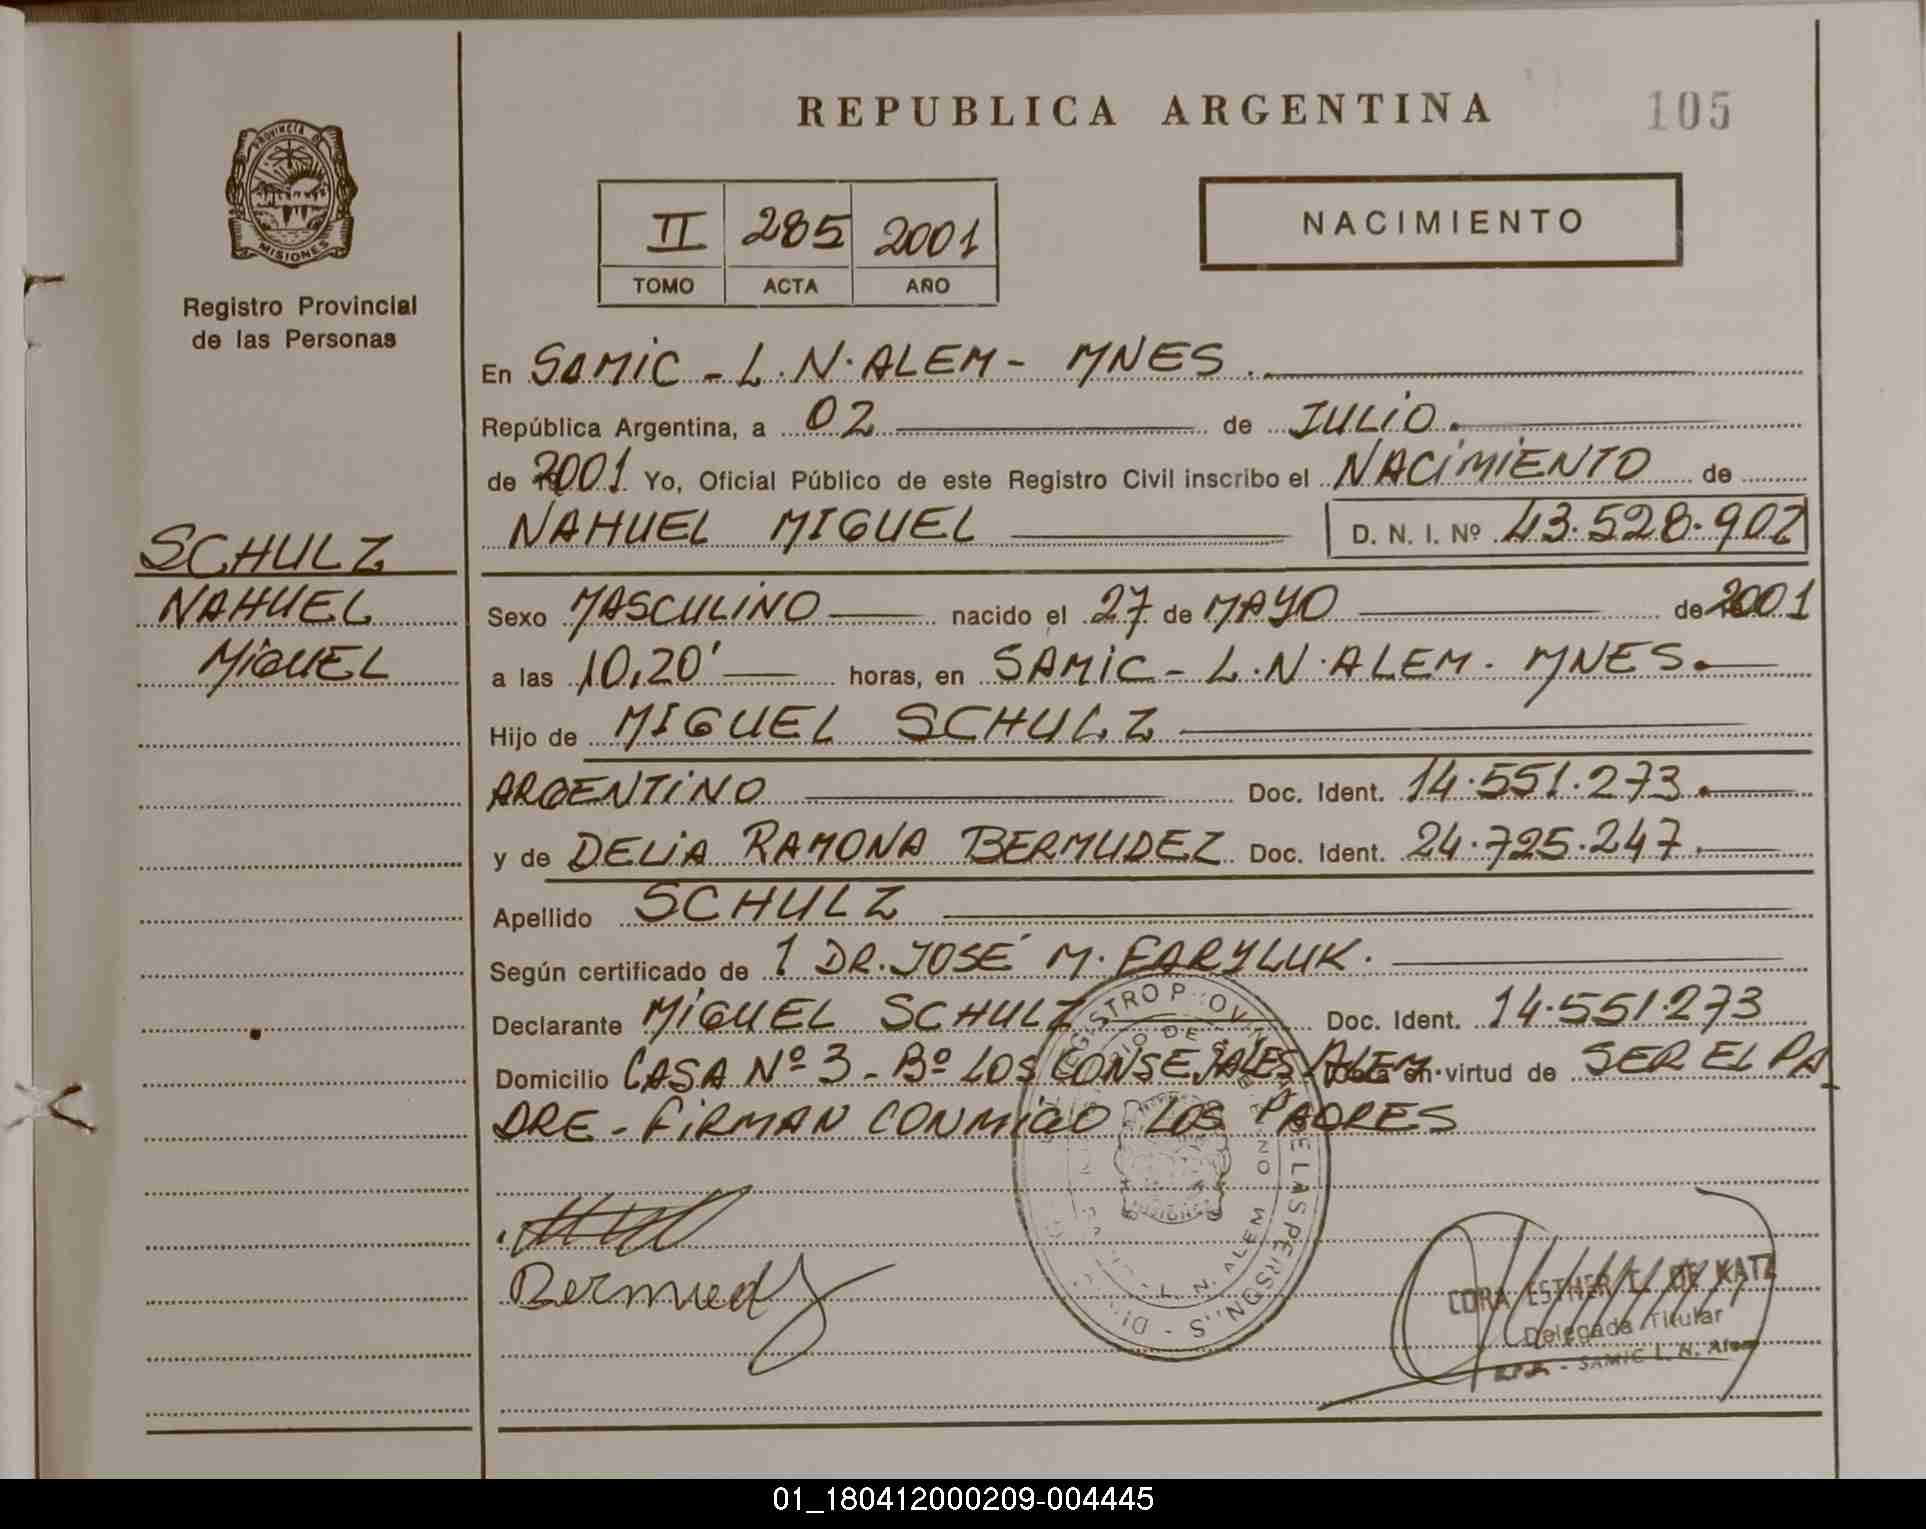 REPUBLICA ARGENTINA
105
PROVINCIA DE
MISIONES
Registro Provincial
de las Personas
II 285 2001
TOMO ACTA AÑO
NACIMIENTO
En SAMIC - L.N. ALEM - MNES.
República Argentina, a 02 de JULIO.
de 2001 Yo, Oficial Público de este Registro Civil inscribo el NACIMIENTO de
NAHUEL MIGUEL D. N. I. Nº 43.528.902
SCHULZ
NAHUEL
MIGUEL
Sexo MASCULINO nacido el 27 de MAYO de 2001
a las 10,20' horas, en SAMIC - L.N. ALEM. MNES.
Hijo de MIGUEL SCHULZ
ARGENTINO Doc. Ident. 14.551.273.
y de DELIA RAMONA BERMUDEZ Doc. Ident. 24.725.247.
Apellido SCHULZ
Según certificado de 1 DR. JOSÉ M. FARYLUK.
Declarante MIGUEL SCHULZ Doc. Ident. 14.551.273
Domicilio CASA Nº 3 - Bº LOS CONSEJALES ALEM. en virtud de SER EL PA
DRE - FIRMAN CONMIGO LOS PADRES
L. N. ALEM
Bermudez
CORA ESTHER C. DE KATZ
Delegada Titular
R.P.P. - SAMIC L. N. Alem
01_180412000209-004445